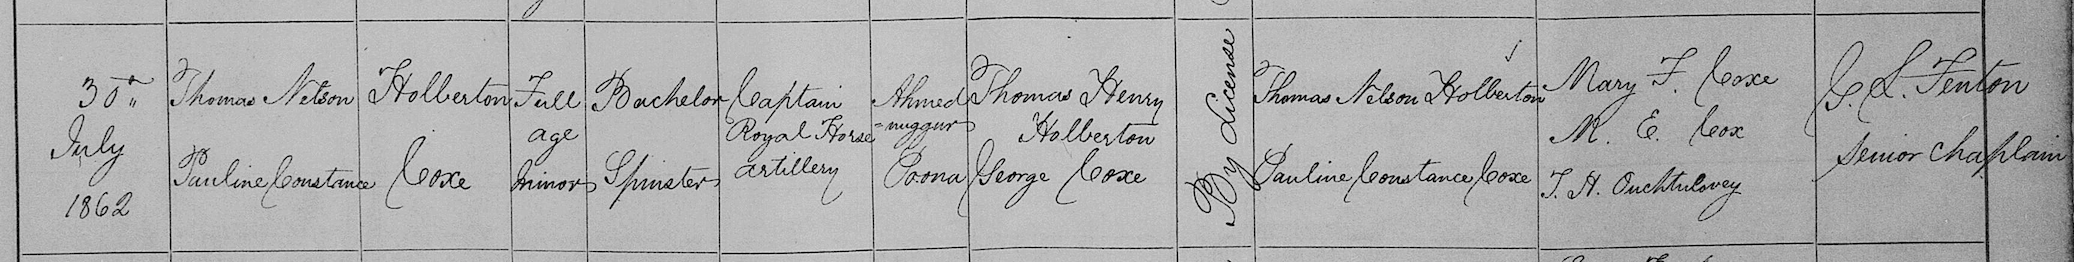 30th July 1862
Thomas Nelson Holberton Full age Bachelor Captain Royal Horse Artillery Ahmed=nuggur Thomas Henry Holberton
Pauline Constance Coxe Minor Spinster Poona George Coxe
By License
Thomas Nelson Holberton
Pauline Constance Coxe
Mary F. Coxe
M. E. Cox
T. H. Ouchtulovey
C. L. Fenton
Senior Chaplain